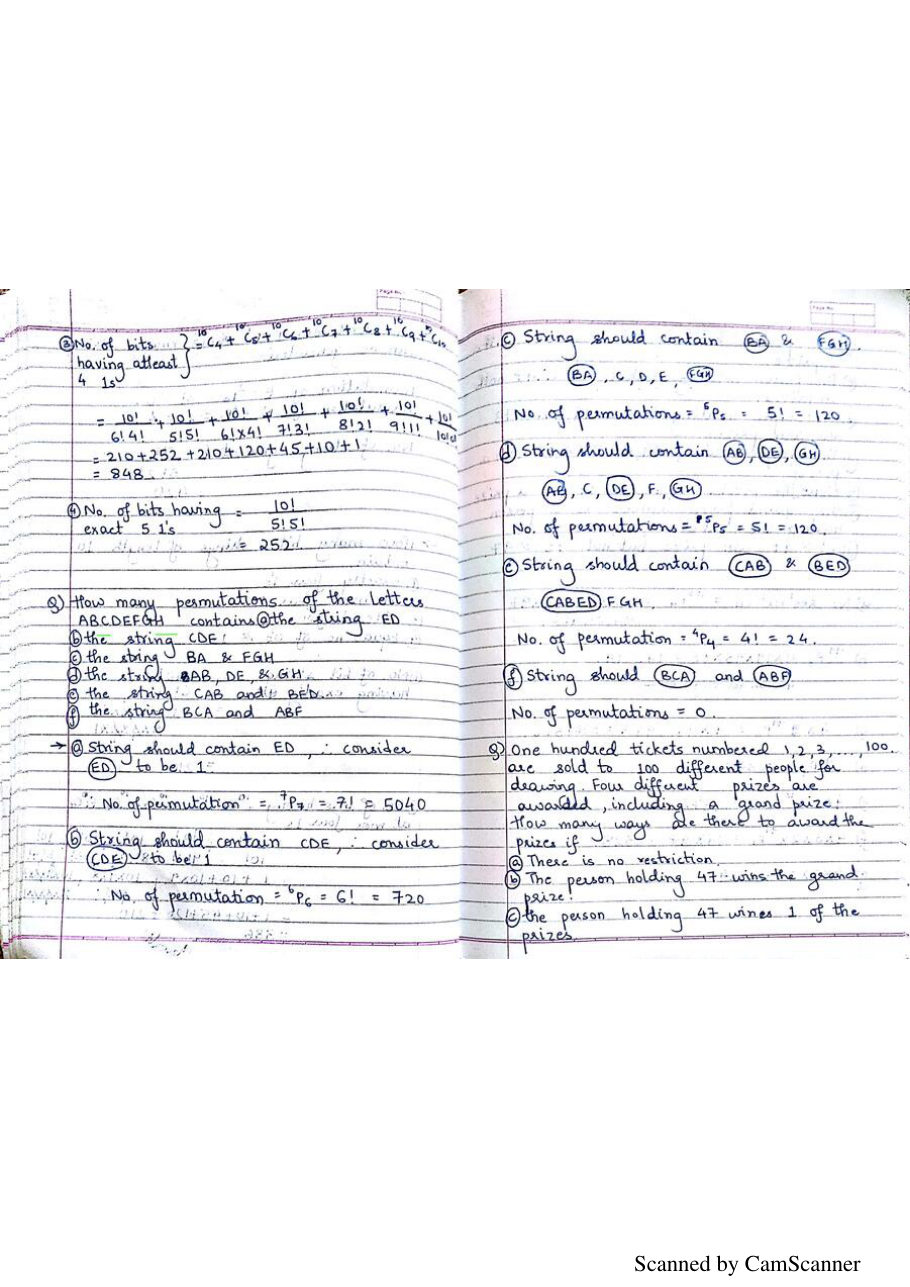 ③ No. of bits } = ¹⁰C₄ + ¹⁰C₅ + ¹⁰C₆ + ¹⁰C₇ + ¹⁰C₈ + ¹⁰C₉ + ¹⁰C₁₀
having atleast
4 1s
= 10!/6!4! + 10!/5!5! + 10!/6!x4! + 10!/7!3! + 10!/8!2! + 10!/9!1! + 10!/10!0!
= 210+252 +210+120+45+10+1
= 848
④ No. of bits having = 10!/5!5!
exact 5 1's
= 252
Q) How many permutations of the letters
ABCDEFGH contains ⓐ the string ED
ⓑ the string CDE
ⓒ the string BA & FGH
ⓓ the string AB, DE, & GH
ⓔ the string CAB and BED
ⓕ the string BCA and ABF
→ ⓐ String should contain ED, ∴ consider
ED to be 1
∴ No. of permutation = ⁷P₇ = 7! = 5040
ⓑ String should contain CDE, ∴ consider
CDE to be 1
∴ No. of permutation = ⁶P₆ = 6! = 720
ⓒ String should contain BA & FGH.
∴ BA, C, D, E, FGH
No. of permutations = ⁵P₅ = 5! = 120.
ⓓ String should contain AB, DE, GH
AB, C, DE, F, GH
No. of permutations = ⁵P₅ = 5! = 120.
ⓔ String should contain CAB & BED
CABED F G H.
No. of permutation = ⁴P₄ = 4! = 24.
ⓕ String should BCA and ABF
No. of permutations = 0.
Q) One hundred tickets numbered 1, 2, 3, ..., 100.
are sold to 100 different people for
drawing. Four different prizes are
awarded, including a grand prize.
How many ways are there to award the
prizes if
ⓐ There is no restriction.
ⓑ The person holding 47 wins the grand
prize.
ⓒ the person holding 47 wines 1 of the
prizes
Scanned by CamScanner